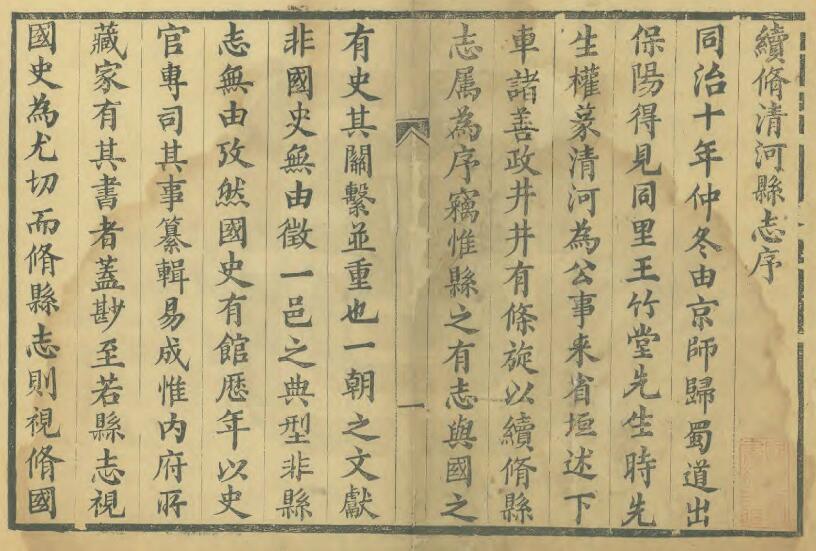 續脩清河縣志序
同治十年仲冬由京師歸蜀道出
保陽得見同里王竹堂先生時先
生權篆清河為公事来省垣述下
車諸善政井井有條旋以續脩縣
志属為序竊惟縣之有志與國之
一
有史其關繫並重也一朝之文獻
非國史無由徵一邑之典型非縣
志無由攷然國史有館歷年以史
官專司其事纂輯易成惟內府所
藏家有其書者蓋尠至若縣志視
國史為尤切而脩縣志則視脩國